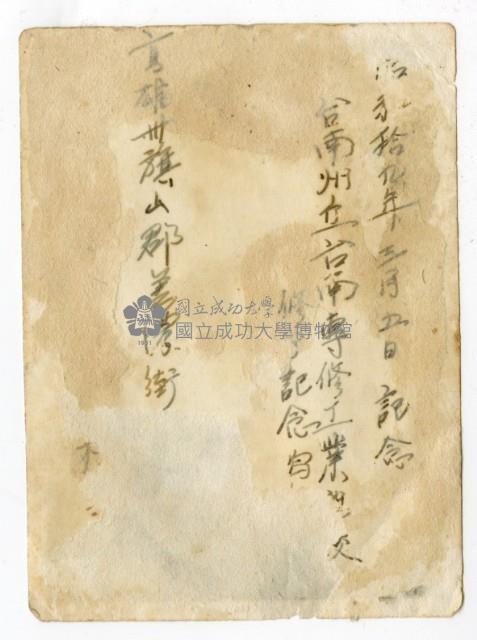 昭和拾九年三月五日 記念
台南州立台南專修工業学校
修了記念写
高雄州旗山郡美濃街
國立成功大學
國立成功大學博物館
1931